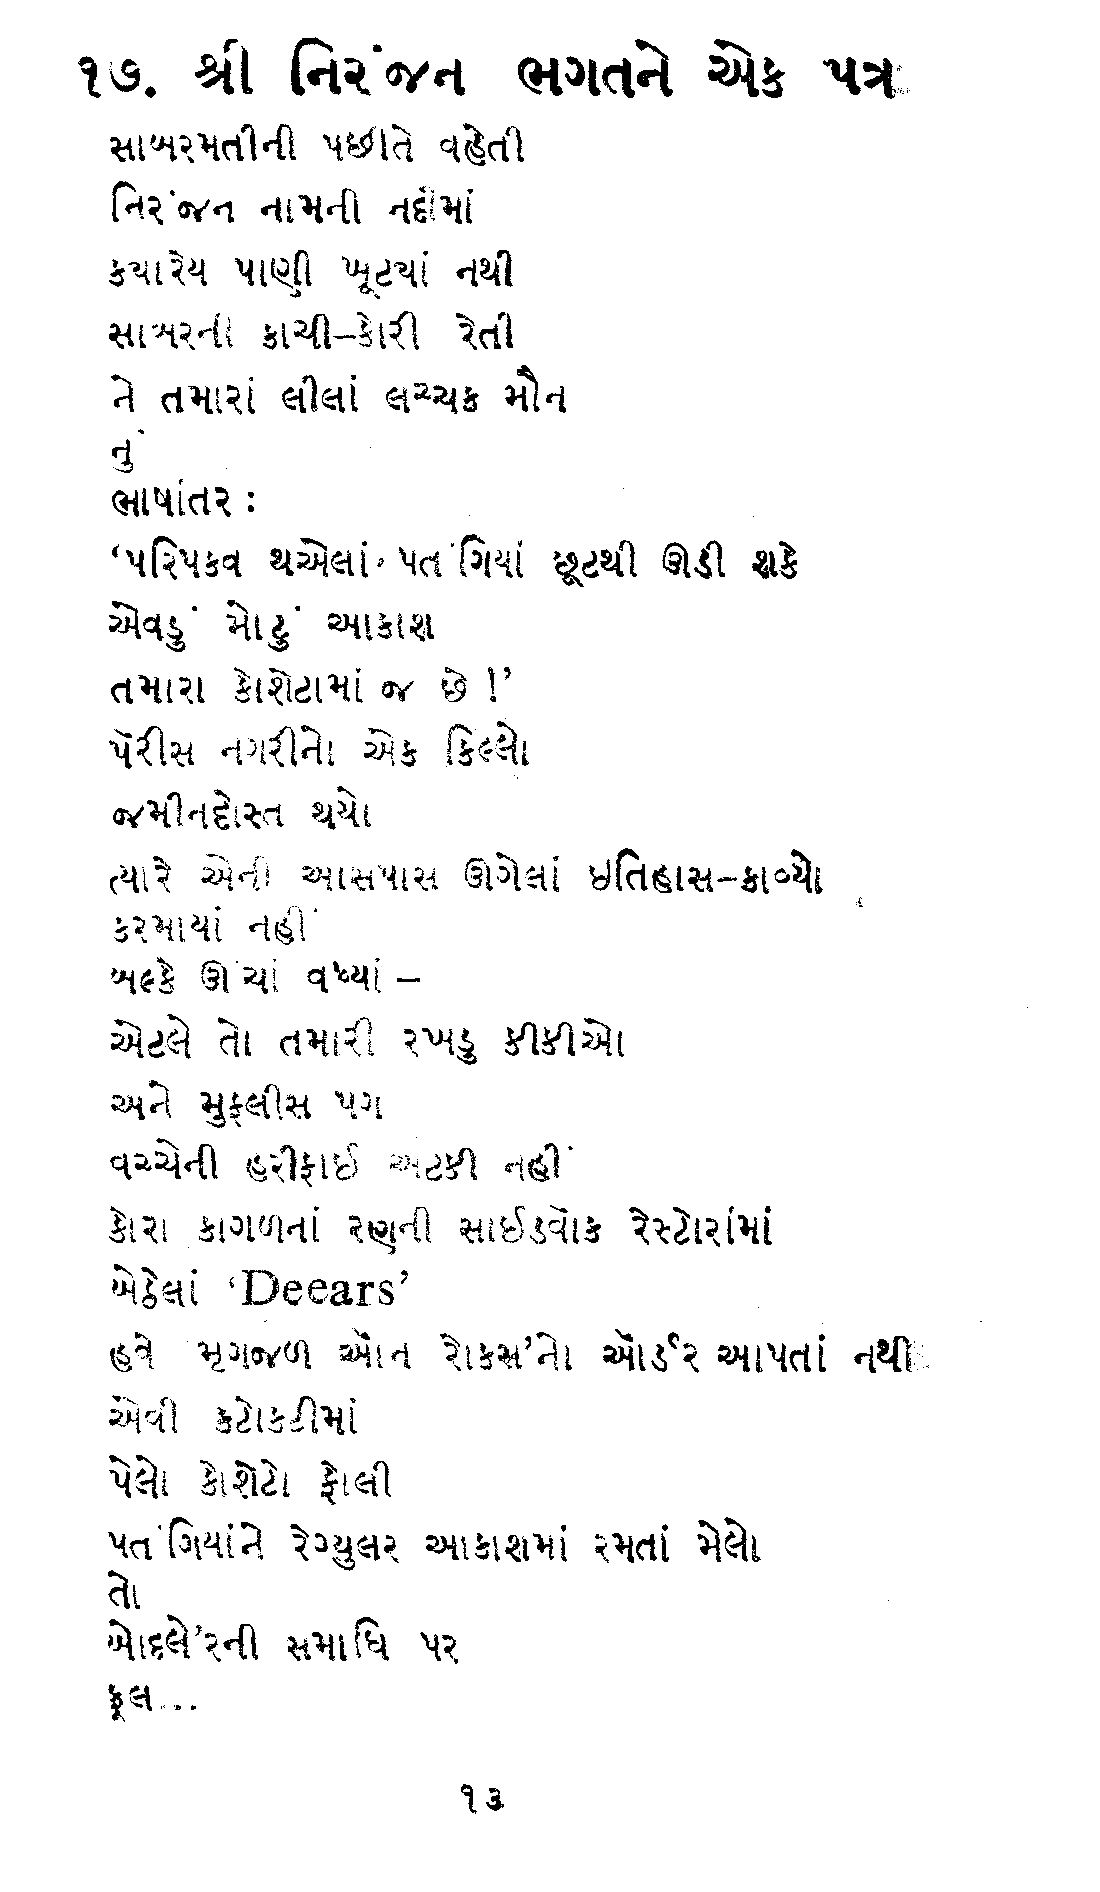 ૧૭. શ્રી નિરંજન ભગતને એક પત્ર
સાબરમતીની પછીતે વહેતી
નિરંજન નામની નદીમાં
ક્યારેય પાણી ખૂટ્યાં નથી
સાબરની કાચી-કોરી રેતી
ને તમારાં લીલાં લચ્ચક મૌન
નું
ભાષાંતર :
‘પરિપકવ થએલાં પતંગિયાં છૂટથી ઊડી શકે
એવડું મોટું આકાશ
તમારા કોશેટામાં જ છે !’
પૅરીસ નગરીનો એક કિલ્લો
જમીનદોસ્ત થયો
ત્યારે એની આસપાસ ઊગેલાં ઇતિહાસ-કાવ્યો
કરમાયાં નહીં
બલ્કે ઊંચાં વધ્યાં –
એટલે તો તમારી રખડુ કીકીઓ
અને મુફલીસ પગ
વચ્ચેની હરીફાઈ અટકી નહીં
કોરા કાગળનાં રણની સાઈડવૉક રેસ્ટોરાંમાં
બેઠેલાં ‘Deears’
હવે મૃગજળ ઑન રોકસ’નો ઑર્ડર આપતાં નથી
એવી કટોકટીમાં
પેલો કોશેટો ફોલી
પતંગિયાંને રેગ્યુલર આકાશમાં રમતાં મેલો
તો
બોદલે’રની સમાધિ પર
ફૂલ...
૧૩